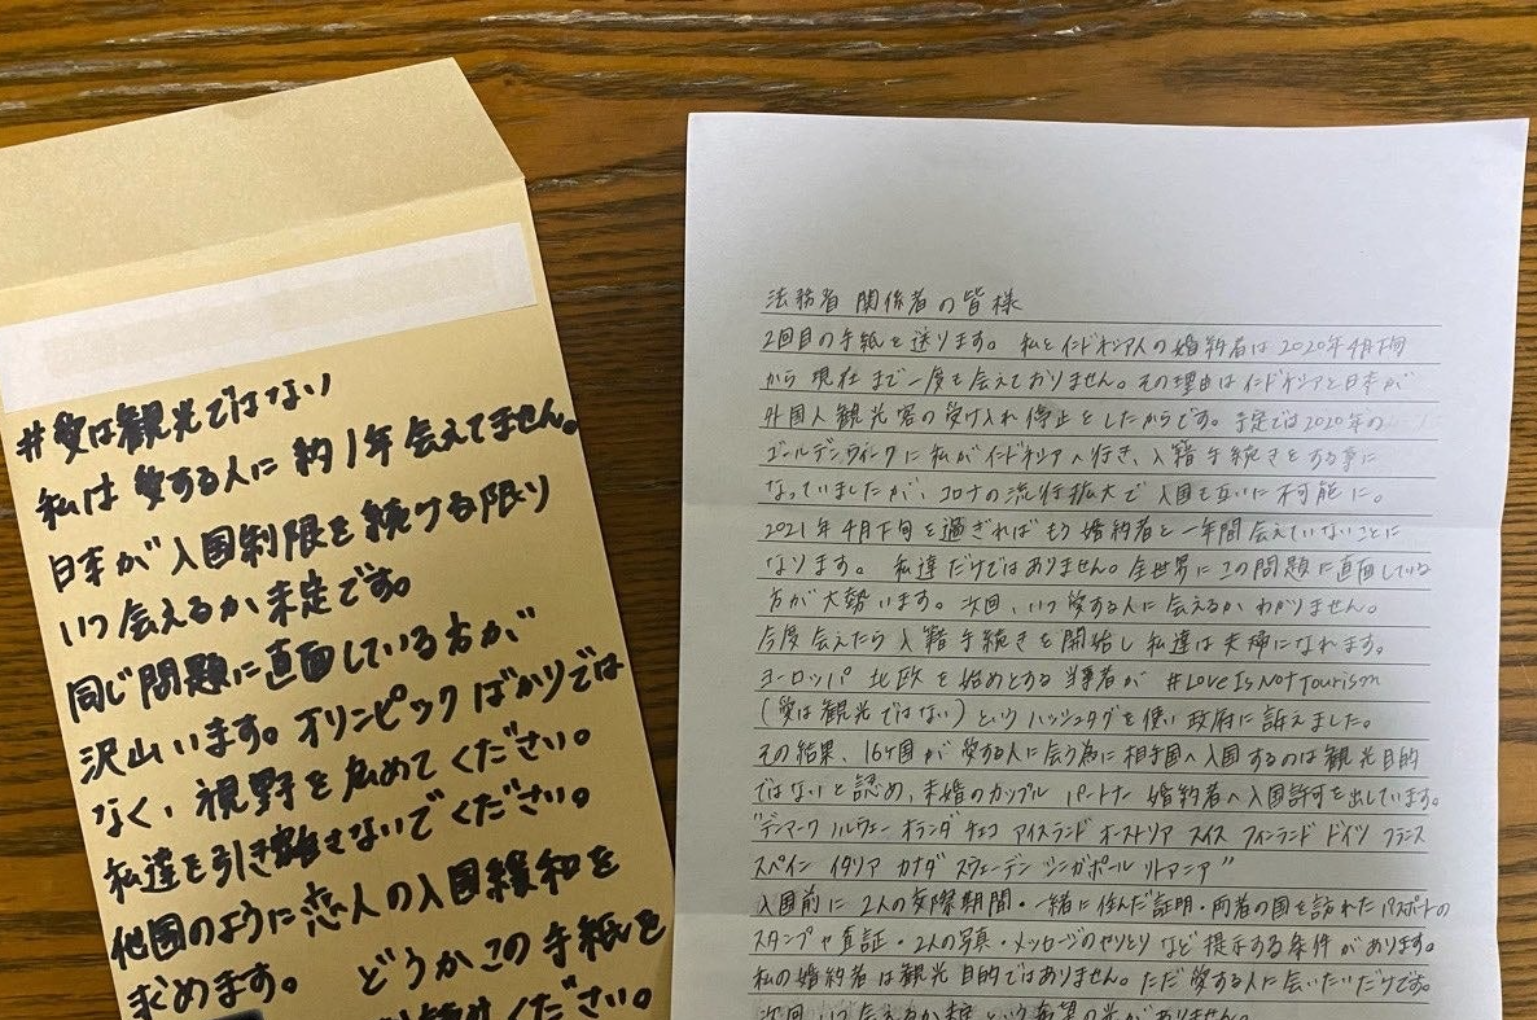 #愛は観光ではない
私は愛する人に約1年会えてません。
日本が入国制限を続ける限り
いつ会えるか未定です。
同じ問題に直面している方が
沢山います。オリンピックばかりでは
なく、視野を広めてください。
私達を引き離さないでください。
他国のように恋人の入国緩和を
求めます。 どうかこの手紙を
ください。
法務省 関係者の皆様
2回目の手紙を送ります。 私とインドネシア人の婚約者は2020年4月下旬
から現在まで一度も会えておりません。その理由はインドネシアと日本が
外国人観光客の受け入れ停止をしたからです。予定では2020年の
ゴールデンウィークに私がインドネシアへ行き、入籍手続きをする事に
なっていましたが、コロナの流行拡大で入国も互いに不可能に。
2021年4月下旬を過ぎればもう婚約者と一年間会えていないことに
なります。 私達だけではありません。全世界にこの問題に直面している
方が大勢います。次回、いつ愛する人に会えるかわかりません。
今度会えたら入籍手続きを開始し私達は夫婦になれます。
ヨーロッパ 北欧を始めとする当事者が #LoveIsNotTourism
(愛は観光ではない)というハッシュタグを使い政府に訴えました。
その結果、16ヶ国が愛する人に会う為に相手国へ入国するのは観光目的
ではないと認め、未婚のカップル パートナー 婚約者へ入国許可を出しています。
"デンマーク ノルウェー オランダ チェコ アイスランド オーストリア スイス フィンランド ドイツ フランス
スペイン イタリア カナダ スウェーデン シンガポール リトアニア"
入国前に2人の交際期間・一緒に住んだ証明・両者の国を訪れたパスポートの
スタンプや査証・2人の写真・メッセージのやりとりなど提示する条件があります。
私の婚約者は観光目的ではありません。ただ愛する人に会いたいだけです。
次回いつ会えるか未定という希望の光がありません。